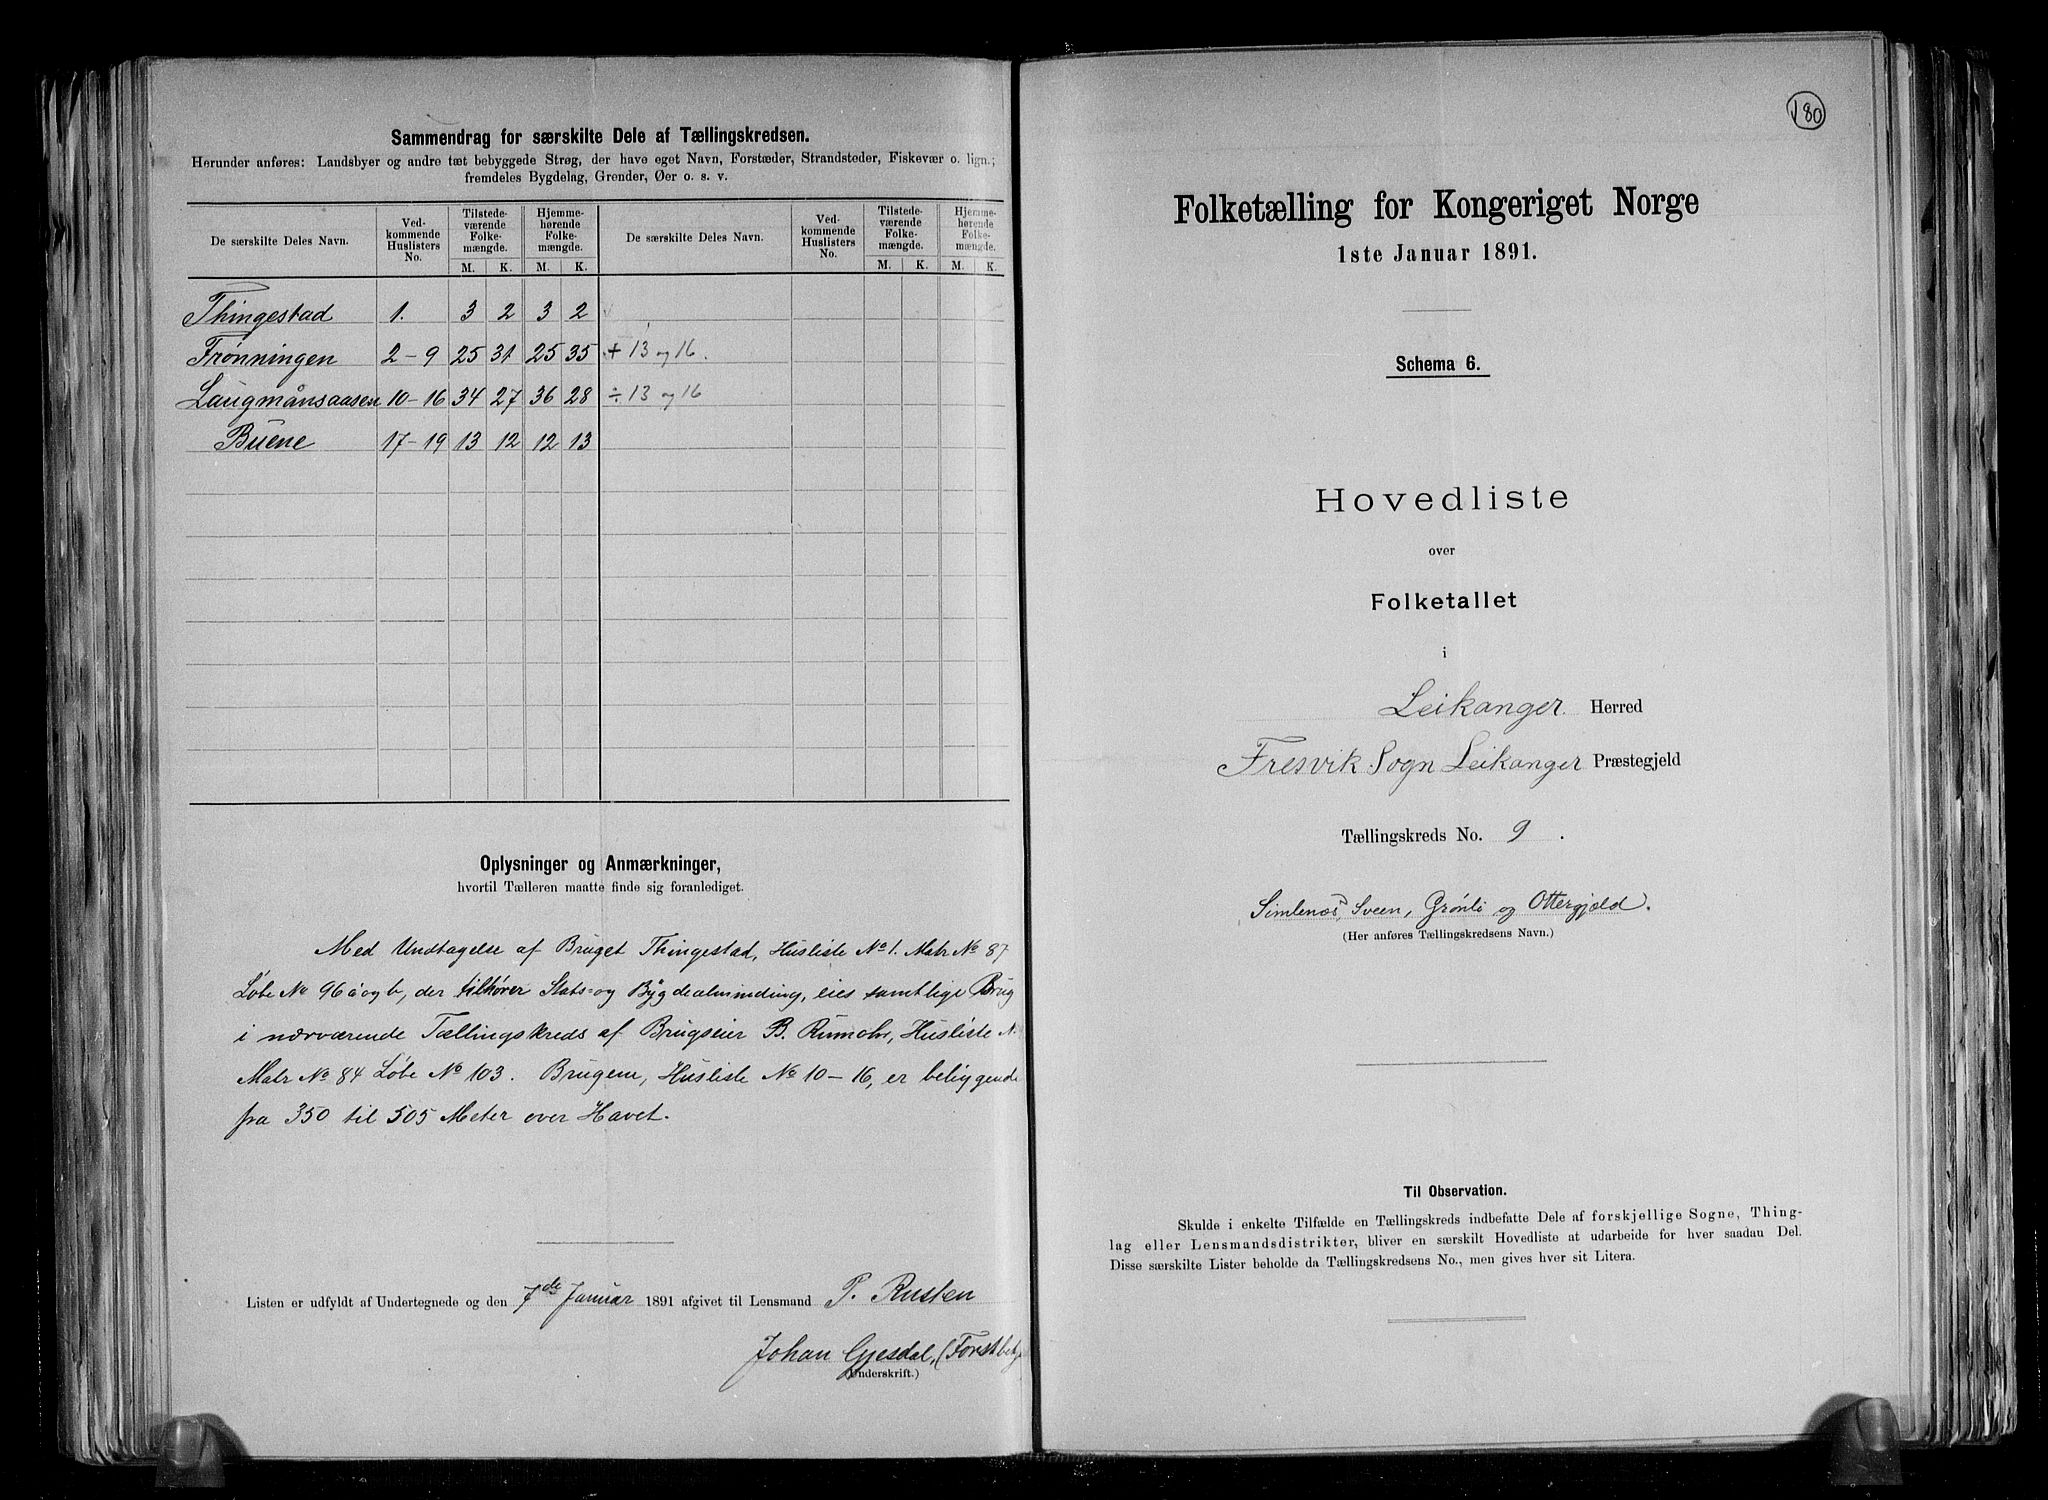 Sammendrag for særskilte Dele af Tællingskredsen.
Herunder anføres: Landsbyer og andre tæt bebyggede Strøg, der have eget Navn, Forstæder, Strandsteder, Fiskevær o. lign.;
fremdeles Bygdelag, Grender, Øer o. s. v.
De særskilte Deles Navn. Ved-kommende Huslisters No. Tilstede-værende Folke-mængde. Hjemme-hørende Folke-mængde. De særskilte Deles Navn. Ved-kommende Huslisters No. Tilstede-værende Folke-mængde. Hjemme-hørende Folke-mængde.
M. K. M. K. M. K. M. K.
Thingestad 1. 3 2 3 2
Trønningen 2-9 25 31 25 35 + 13 og 16.
Laugmånsaasen 10-16 34 27 36 28 ÷ 13 og 16
Buene 17-19 13 12 12 13
Oplysninger og Anmærkninger,
hvortil Tælleren maatte finde sig foranlediget.
Med Undtagelse af Bruget Thingestad, Husliste No 1. Matr No 87
Løbe No 96 a og b, der tilhører Stats- og Bygdealminding, eies samtlige Brug
i nærværende Tællingskreds af Brugseier B. Rumohr, Husliste N.
Matr No 84 Løbe No 103. Brugene, Husliste No 10-16, er beliggende
fra 350 til 505 Meter over Havet.
Listen er udfyldt af Undertegnede og den 7de Januar 1891 afgivet til Lensmand P. Rusten
Johan Gjesdal, (Forstbetj
(Underskrift.)
180
Folketælling for Kongeriget Norge
1ste Januar 1891.
Schema 6.
Hovedliste
over
Folketallet
i
Leikanger Herred
Fresvik Sogn Leikanger Præstegjeld
Tællingskreds No. 9.
Simlenæs, Sveen, Grønli og Ottergjeld.
(Her anføres Tællingskredsens Navn.)
Til Observation.
Skulde i enkelte Tilfælde en Tællingskreds indbefatte Dele af forskjellige Sogne, Thing-
lag eller Lensmandsdistrikter, bliver en særskilt Hovedliste at udarbeide for hver saadan Del.
Disse særskilte Lister beholde da Tællingskredsens No., men gives hver sit Litera.